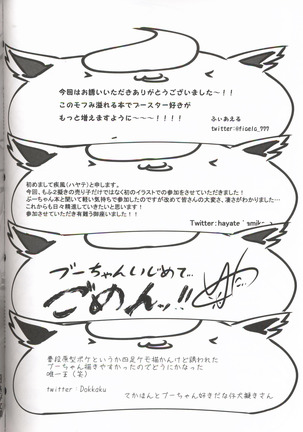 今回はお誘いいただきありがとうございました～！！
このモフみ溢れる本でブースター好きが
もっと増えますように～～～！！！！
ふぃあえる
twitter:@fisela_777
初めまして疾風(ハヤテ)と申します。
今回、もふ2擬きの売り子だけではなく初のイラストでの参加をさせていただきました！
ぶーちゃん本と聞いて軽い気持ちで参加したのですが改めて皆さんの大変さ、凄さがわかりました…
これからも日々精進していきたいと思います！
参加させていただき有難う御座いました！！
Twitter:hayate
ブーちゃんいじめて…
ごめんッ!!
普段原型ポケというか四足ケモ描かんけど誘われた
ブーちゃん描きやすかったのでどうにかなった
唯一王（笑）
twitter：Dokkoku
てかほんとブーちゃん好きだな仔犬擬きさん